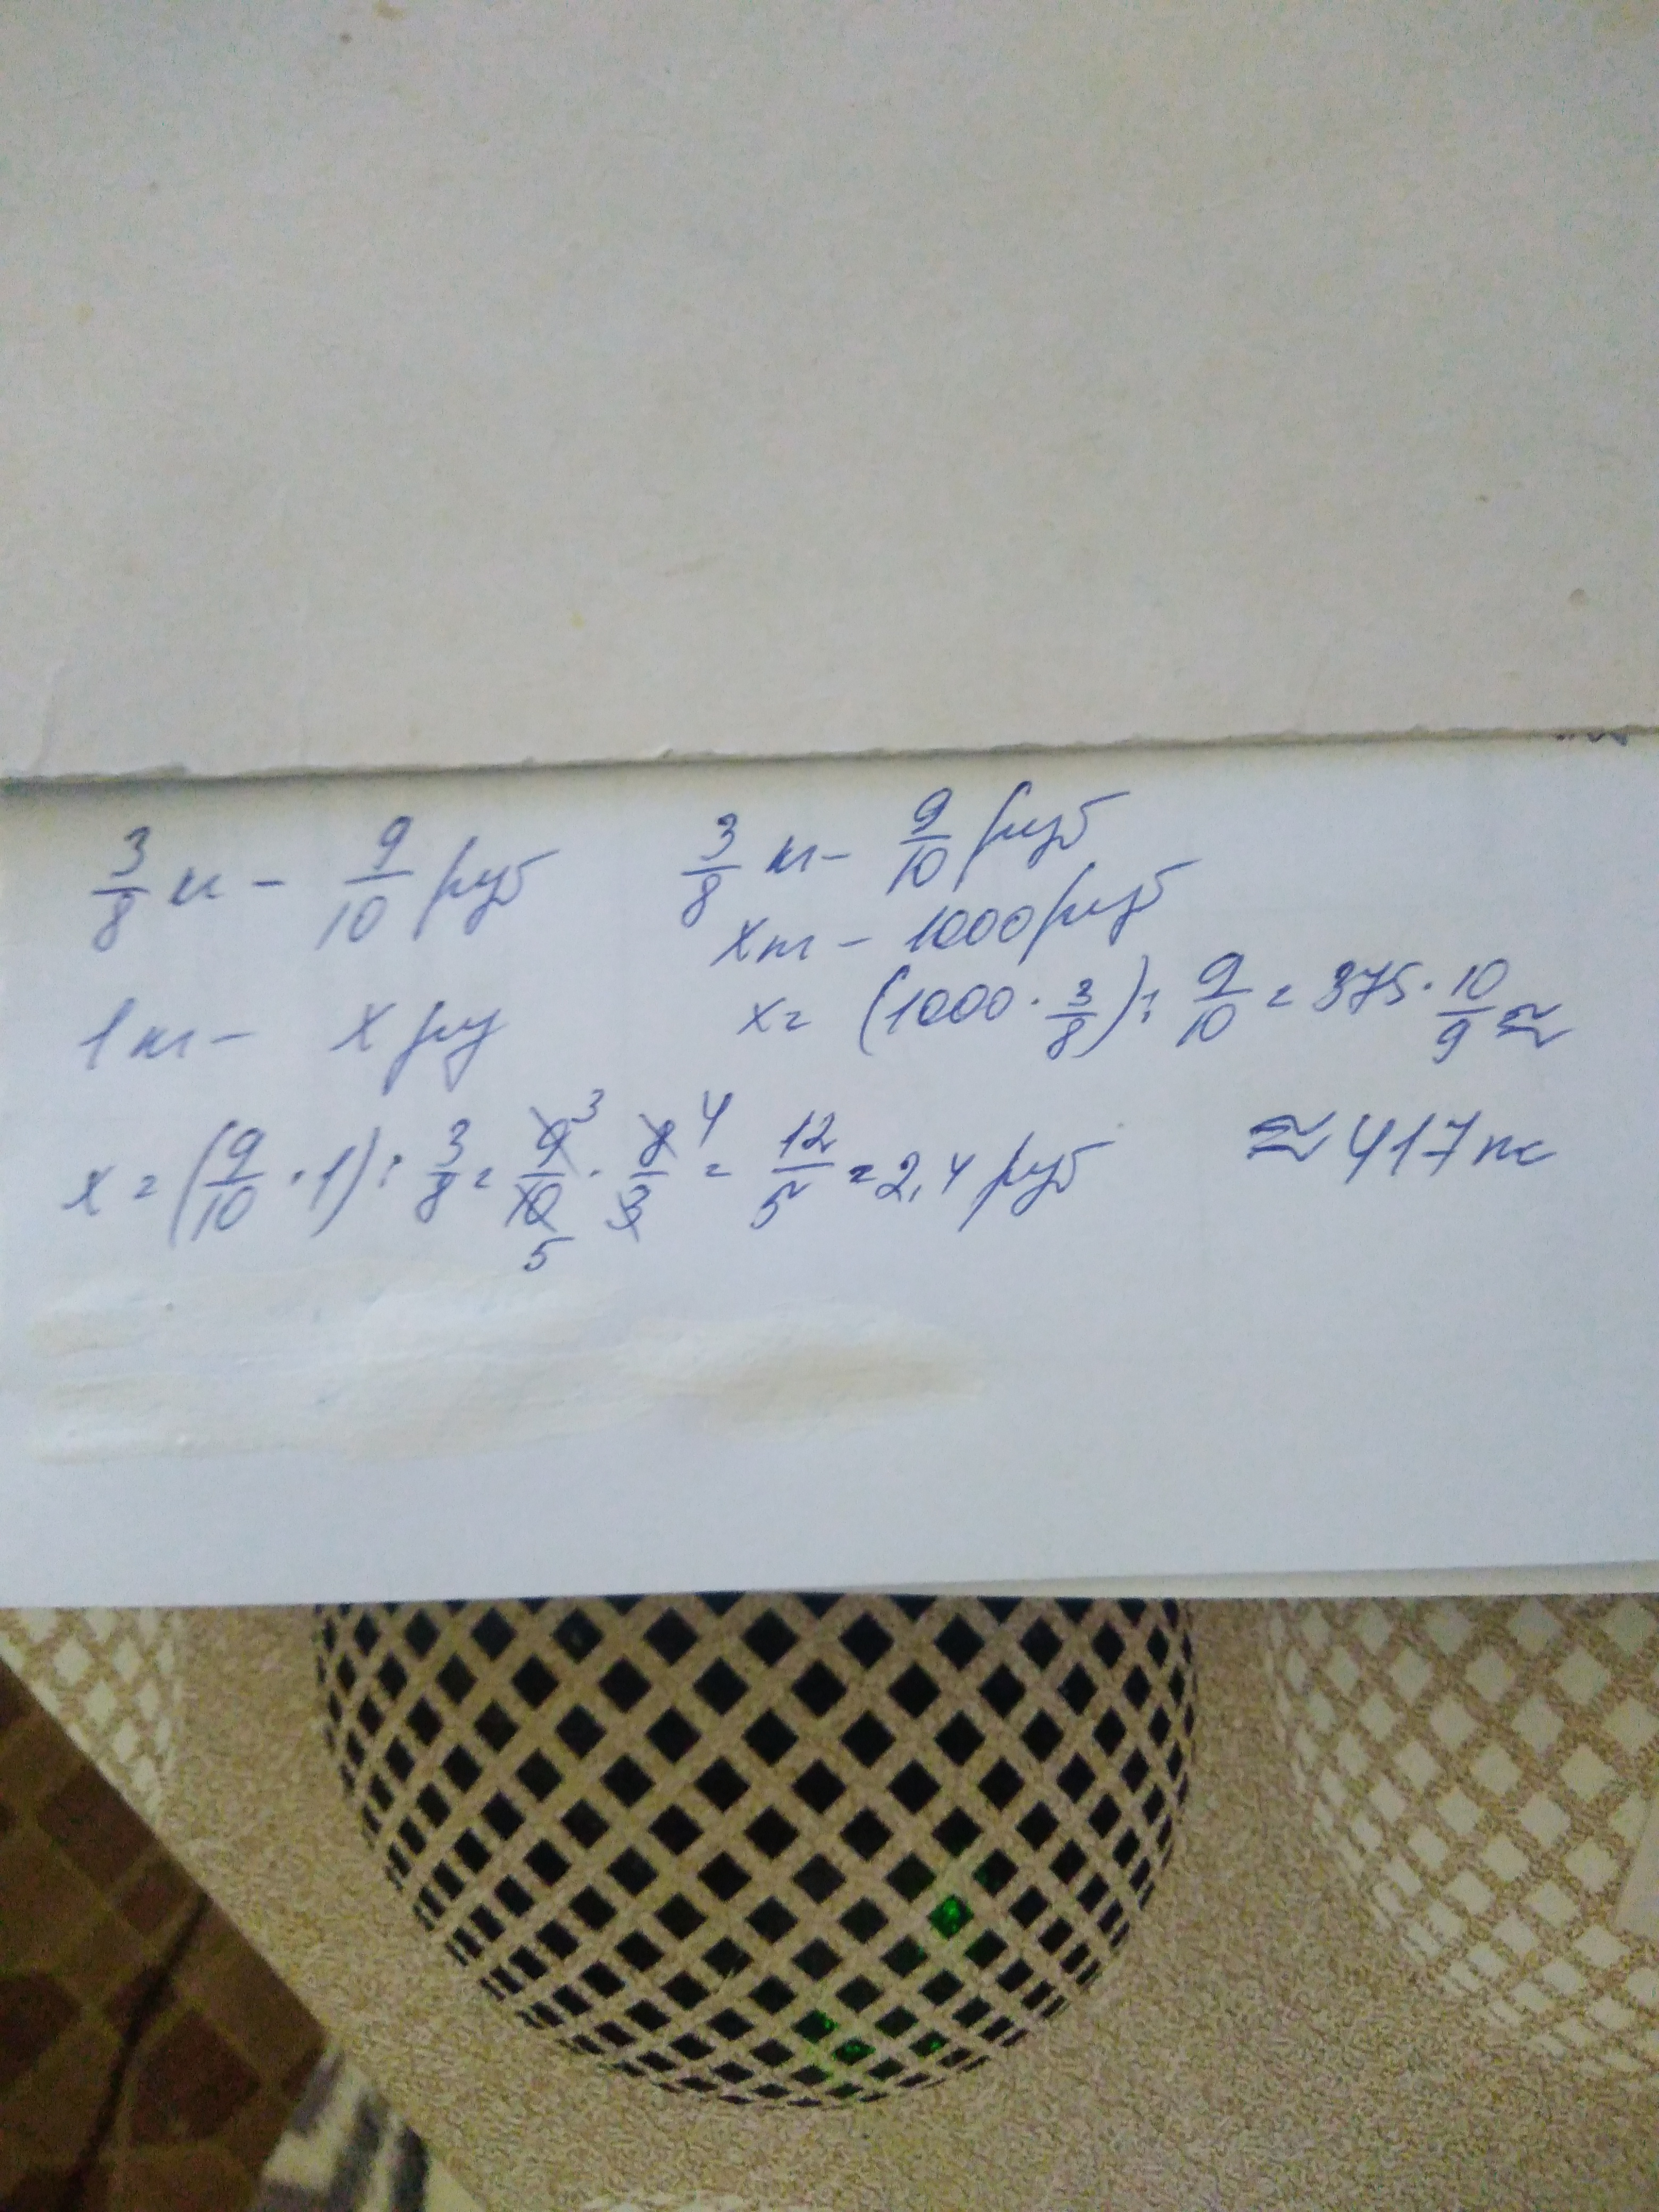 3/8 м - 9/10 руб
1 м - x ру
x = (9/10 · 1) : 3/8 = 9/10 · 8/3 = 12/5 = 2,4 руб
3 4
5
3/8 м - 9/10 руб
x м - 1000 руб
x = (1000 · 3/8) : 9/10 = 375 · 10/9 ≈
≈ 417 м